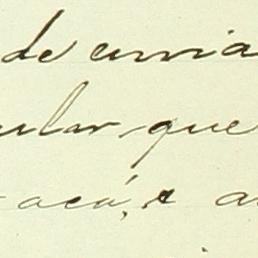 de envia
ular que
acá, e a